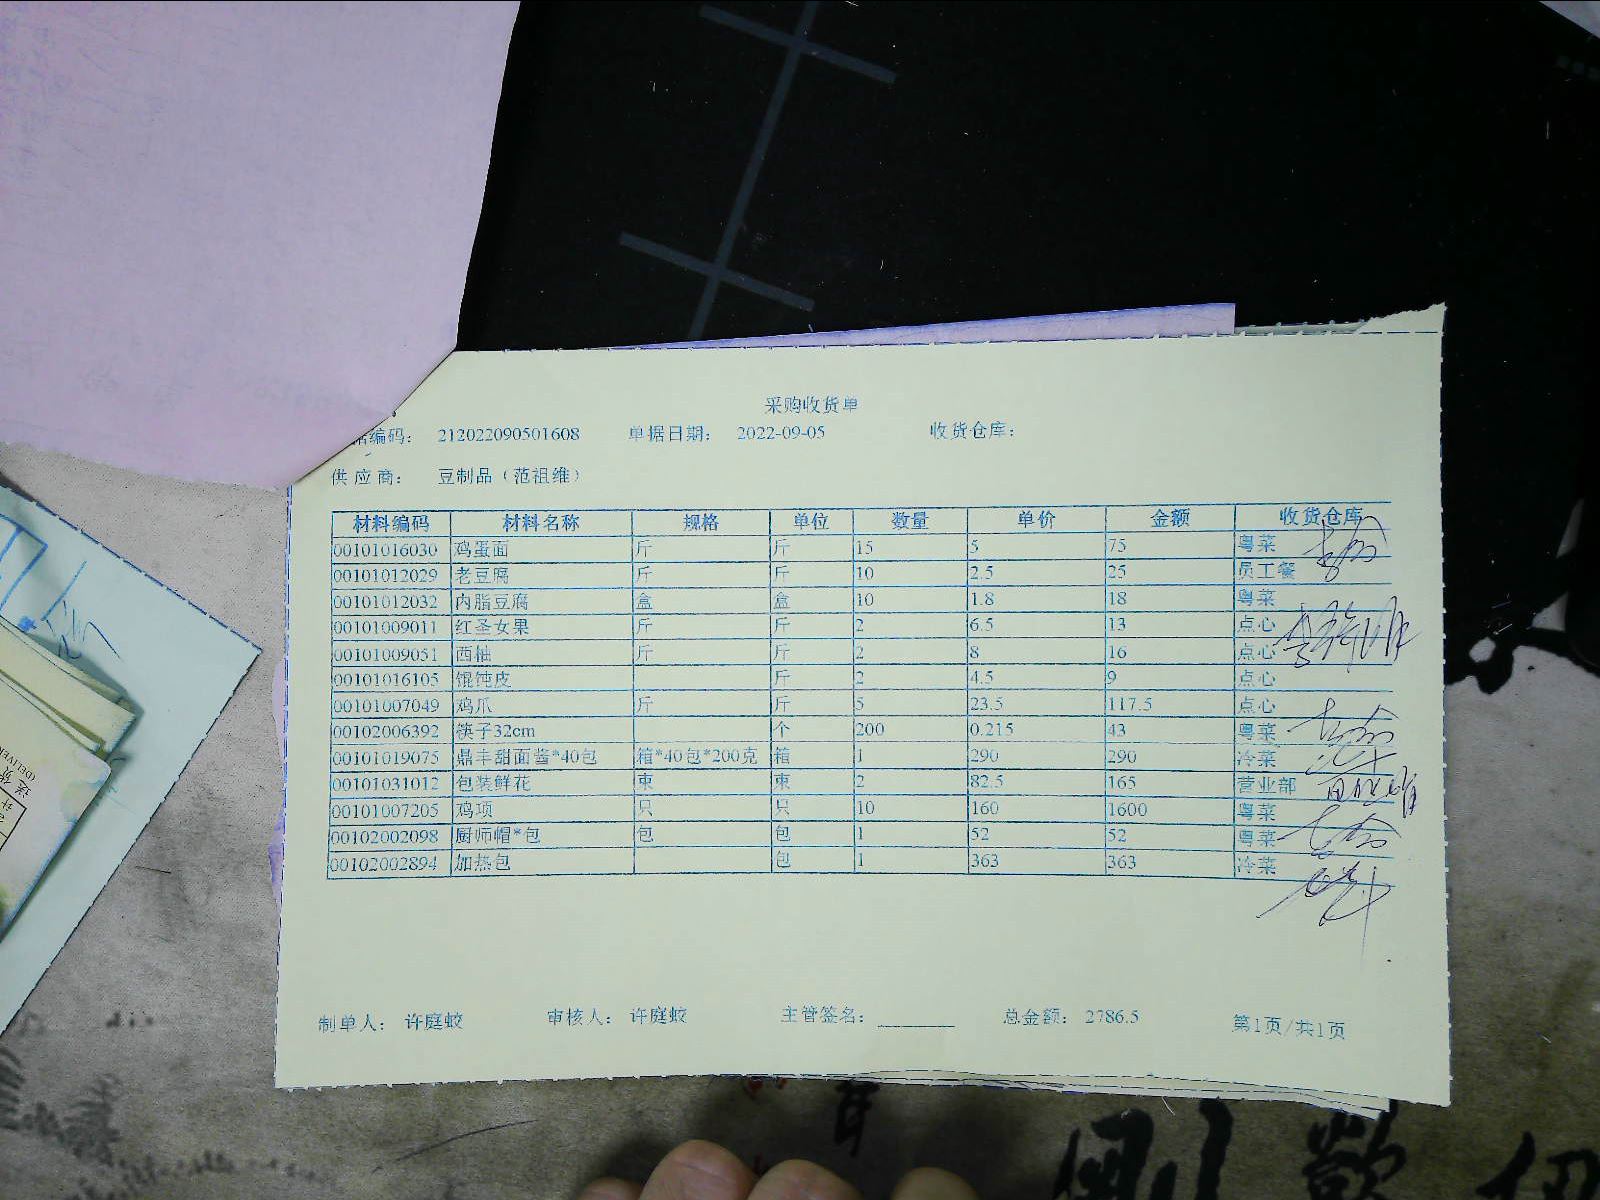 采购收货单
编码： 212022090501608 单据日期： 2022-09-05 收货仓库：
供 应 商： 豆制品（范祖维）
材料编码 材料名称 规格 单位 数量 单价 金额 收货仓库
00101016030 鸡蛋面 斤 斤 15 5 75 粤菜
00101012029 老豆腐 斤 斤 10 2.5 25 员工餐
00101012032 内脂豆腐 盒 盒 10 1.8 18 粤菜
00101009011 红圣女果 斤 斤 2 6.5 13 点心
00101009051 西柚 斤 斤 2 8 16 点心
00101016105 馄饨皮 斤 2 4.5 9 点心
00101007049 鸡爪 斤 斤 5 23.5 117.5 点心
00102006392 筷子32cm 个 200 0.215 43 粤菜
00101019075 鼎丰甜面酱*40包 箱*40包*200克 箱 1 290 290 冷菜
00101031012 包装鲜花 束 束 2 82.5 165 营业部
00101007205 鸡项 只 只 10 160 1600 粤菜
00102002098 厨师帽*包 包 包 1 52 52 粤菜
00102002894 加热包 包 1 363 363 冷菜
制单人： 许庭蛟 审核人： 许庭蛟 主管签名： 总金额： 2786.5 第1页/共1页